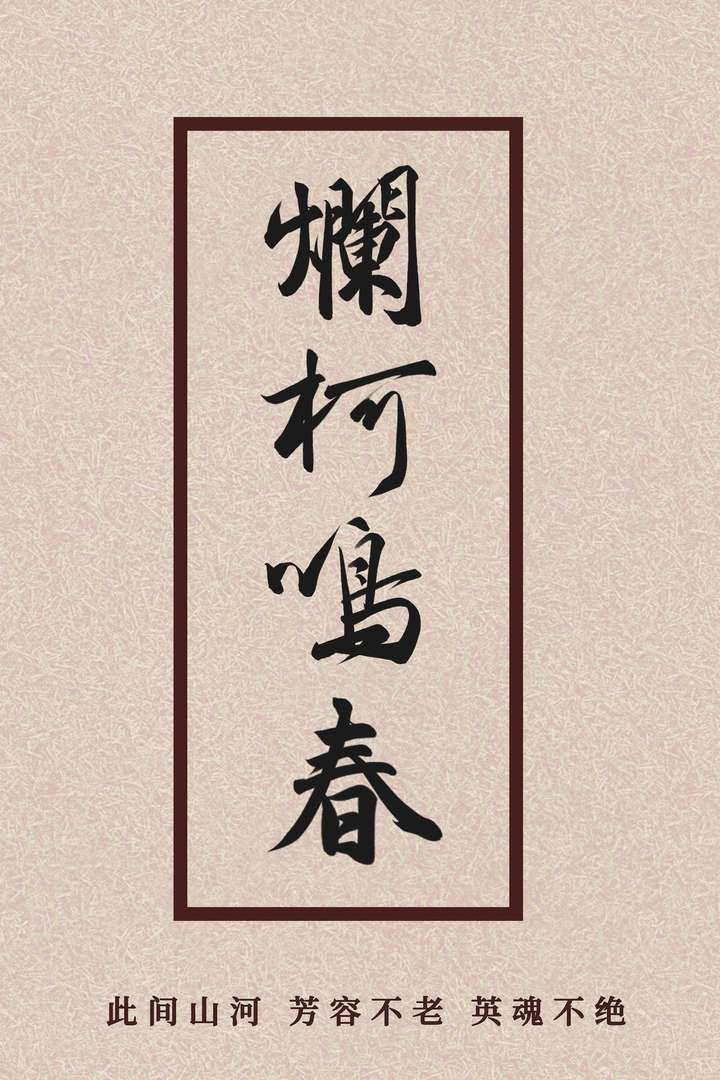 爛柯鳴春
此间山河 芳容不老 英魂不绝